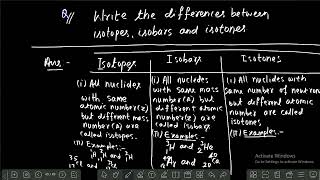 Q// Write the differences between
isotopes, isobars and isotones.
Ans:-
Isotopes
Isobars
Isotones
(i) All nuclides
with same
atomic
number(z)
but different
mass
number(A) are
called isotopes.
(ii) Examples:-
(i) All nuclides
with same mass
number(A) but
different atomic
number(z) are
called isobars
(ii) Examples:-
(i) All nuclides with
same number of neutron
but different atomic
number are called
isotones.
(ii) Examples:-
Activate Windows
Go to Settings to activate Windows.